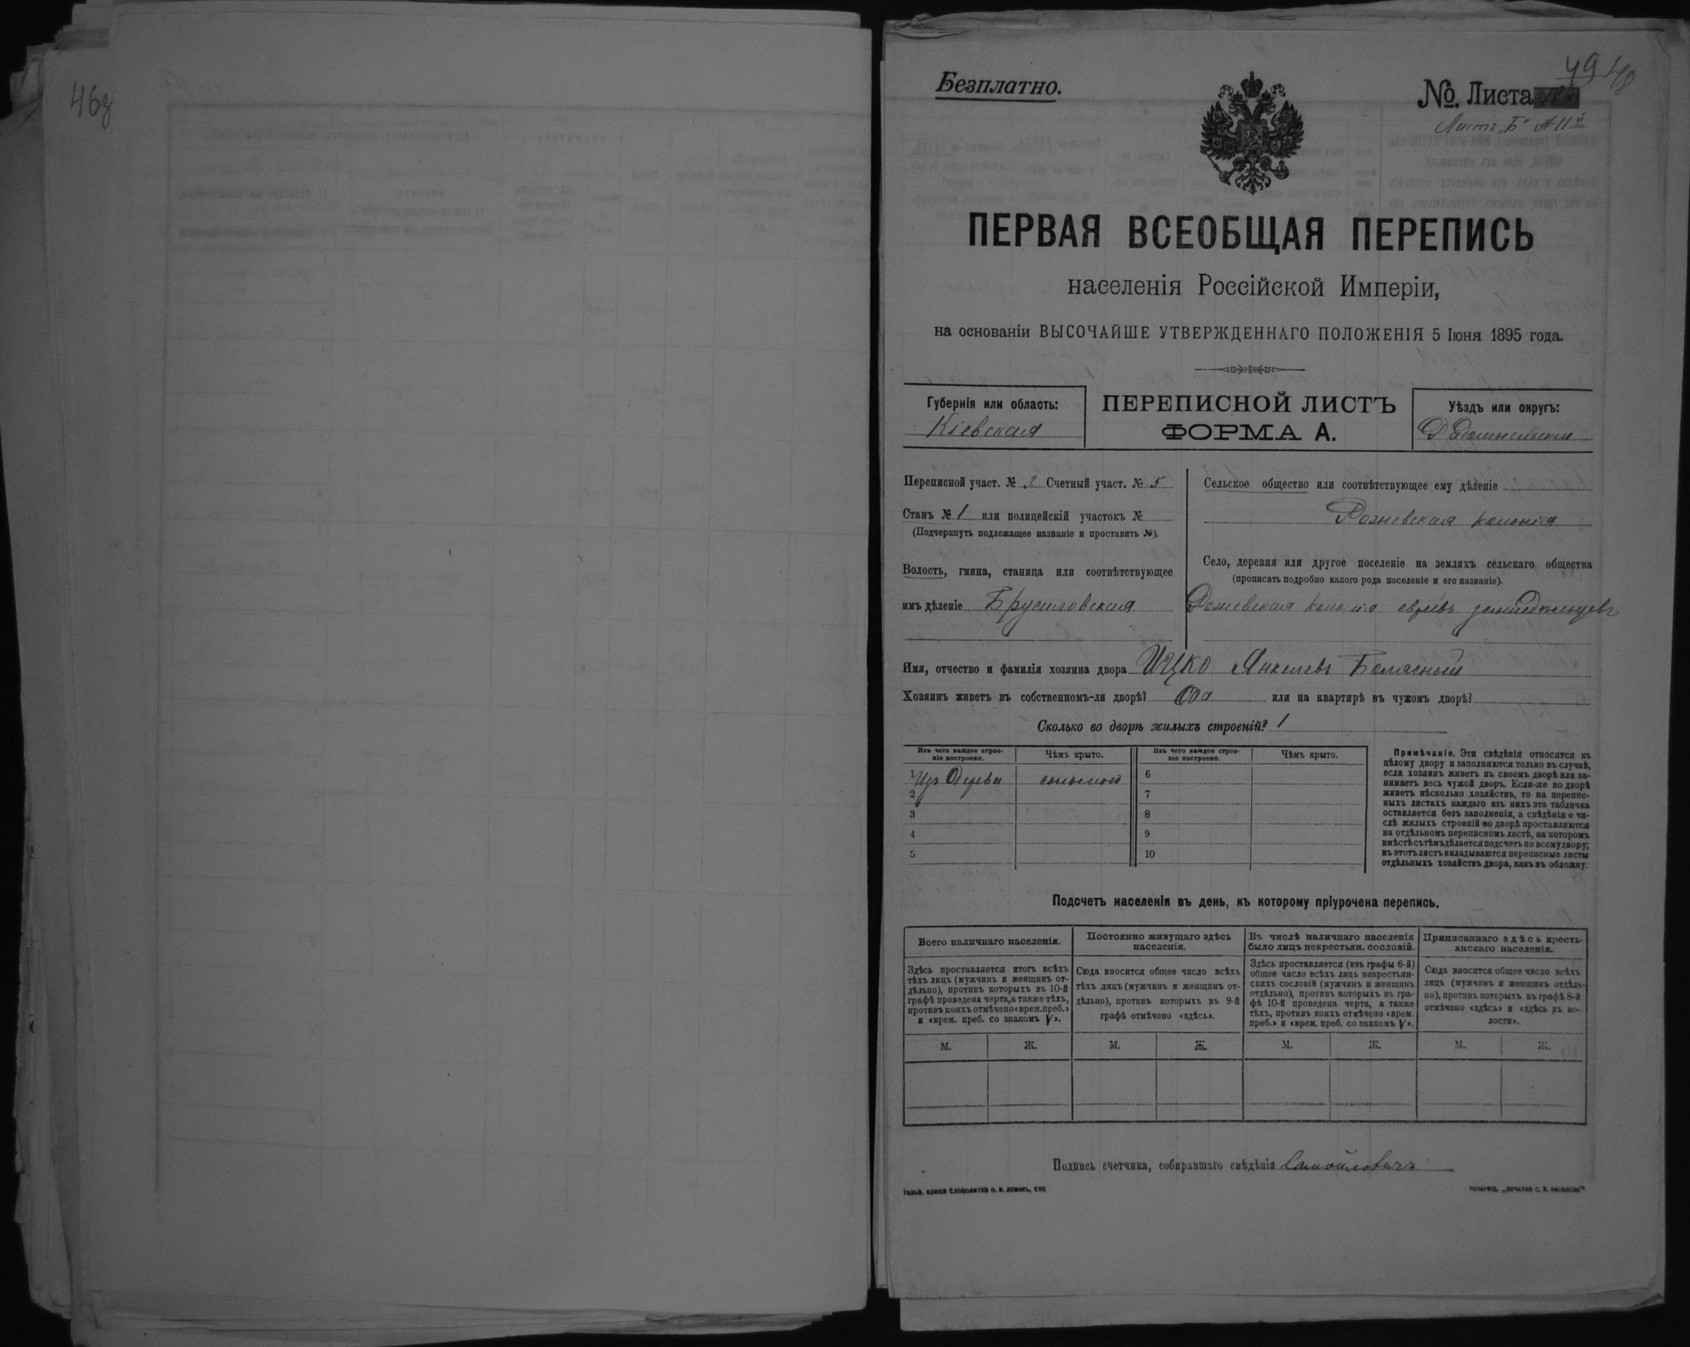 46з
Безплатно.
49 40
№. Листа
Листъ „Б“ № 11й
ПЕРВАЯ ВСЕОБЩАЯ ПЕРЕПИСЬ
населенія Россійской Имперіи,
на основаніи ВЫСОЧАЙШЕ УТВЕРЖДЕННАГО ПОЛОЖЕНІЯ 5 Іюня 1895 года.
Губернія или область:
Кіевская
ПЕРЕПИСНОЙ ЛИСТЪ
ФОРМА А.
Уѣздъ или округъ:
Переписной участ. № 2 Счетный участ. № 5
Станъ № 1 или полицейскій участокъ №
(Подчеркнуть подлежащее названіе и проставить №).
Волость, гмина, станица или соотвѣтствующее
имъ дѣленіе Брусиловская
Сельское общество или соотвѣтствующее ему дѣленіе
колонія
Село, деревня или другое поселеніе на земляхъ сельскаго общества
(прописать подробно какого рода поселеніе и его названіе).
колонія евреевъ земледѣльцевъ
Имя, отчество и фамилія хозяина двора Ицко Янкелевъ
Хозяинъ живетъ въ собственномъ-ли дворѣ? Да или на квартирѣ въ чужомъ дворѣ?
Сколько во дворѣ жилыхъ строеній? 1
Изъ чего каждое строеніе построено.
Чѣмъ крыто.
Изъ чего каждое строеніе построено.
Чѣмъ крыто.
1 Изъ Дерева соломою 6
2 7
3 8
4 9
5 10
Примѣчаніе. Эти свѣдѣнія относятся къ
цѣлому двору и заполняются только въ случаѣ,
если хозяинъ живетъ въ своемъ дворѣ или за-
нимаетъ весь чужой дворъ. Если-же во дворѣ
живетъ нѣсколько хозяйствъ, то на перепис-
ныхъ листахъ каждаго изъ нихъ эта табличка
оставляется безъ заполненія, а свѣдѣнія о чи-
слѣ жилыхъ строеній во дворѣ проставляются
на отдѣльномъ переписномъ листѣ, на которомъ
вмѣстѣ съ тѣмъ дѣлается подсчетъ по всему двору;
въ этотъ листъ вкладываются переписные листы
отдѣльныхъ хозяйствъ двора, какъ въ обложку.
Подсчетъ населенія въ день, къ которому пріурочена перепись.
Всего наличнаго населенія.
Постоянно живущаго здѣсь
населенія.
Въ числѣ наличнаго населенія
было лицъ некрестьян. сословій.
Приписаннаго здѣсь кресть-
янскаго населенія.
Здѣсь проставляется итогъ всѣхъ
тѣхъ лицъ (мужчинъ и женщинъ от-
дѣльно), противъ которыхъ въ 10-й
графѣ проведена черта, а также тѣхъ,
противъ коихъ отмѣчено «врем. преб.»
и «врем. преб. со знакомъ V».
Сюда вносится общее число всѣхъ
тѣхъ лицъ (мужчинъ и женщинъ от-
дѣльно), противъ которыхъ въ 9-й
графѣ отмѣчено «здѣсь».
Здѣсь проставляется (изъ графы 6-й)
общее число всѣхъ лицъ некрестьян-
скихъ сословій (мужчинъ и женщинъ
отдѣльно), противъ которыхъ въ гра-
фѣ 10-й проведена черта, а также
тѣхъ, противъ коихъ отмѣчено «врем.
преб.» и «врем. преб. со знакомъ V».
Сюда вносится общее число всѣхъ
лицъ (мужчинъ и женщинъ отдѣль-
но), противъ которыхъ въ графѣ 8-й
отмѣчено «здѣсь» и «здѣсь въ во-
лости».
М. Ж. М. Ж. М. Ж. М. Ж.
Подпись счетчика, собиравшаго свѣдѣнія Самойловичъ